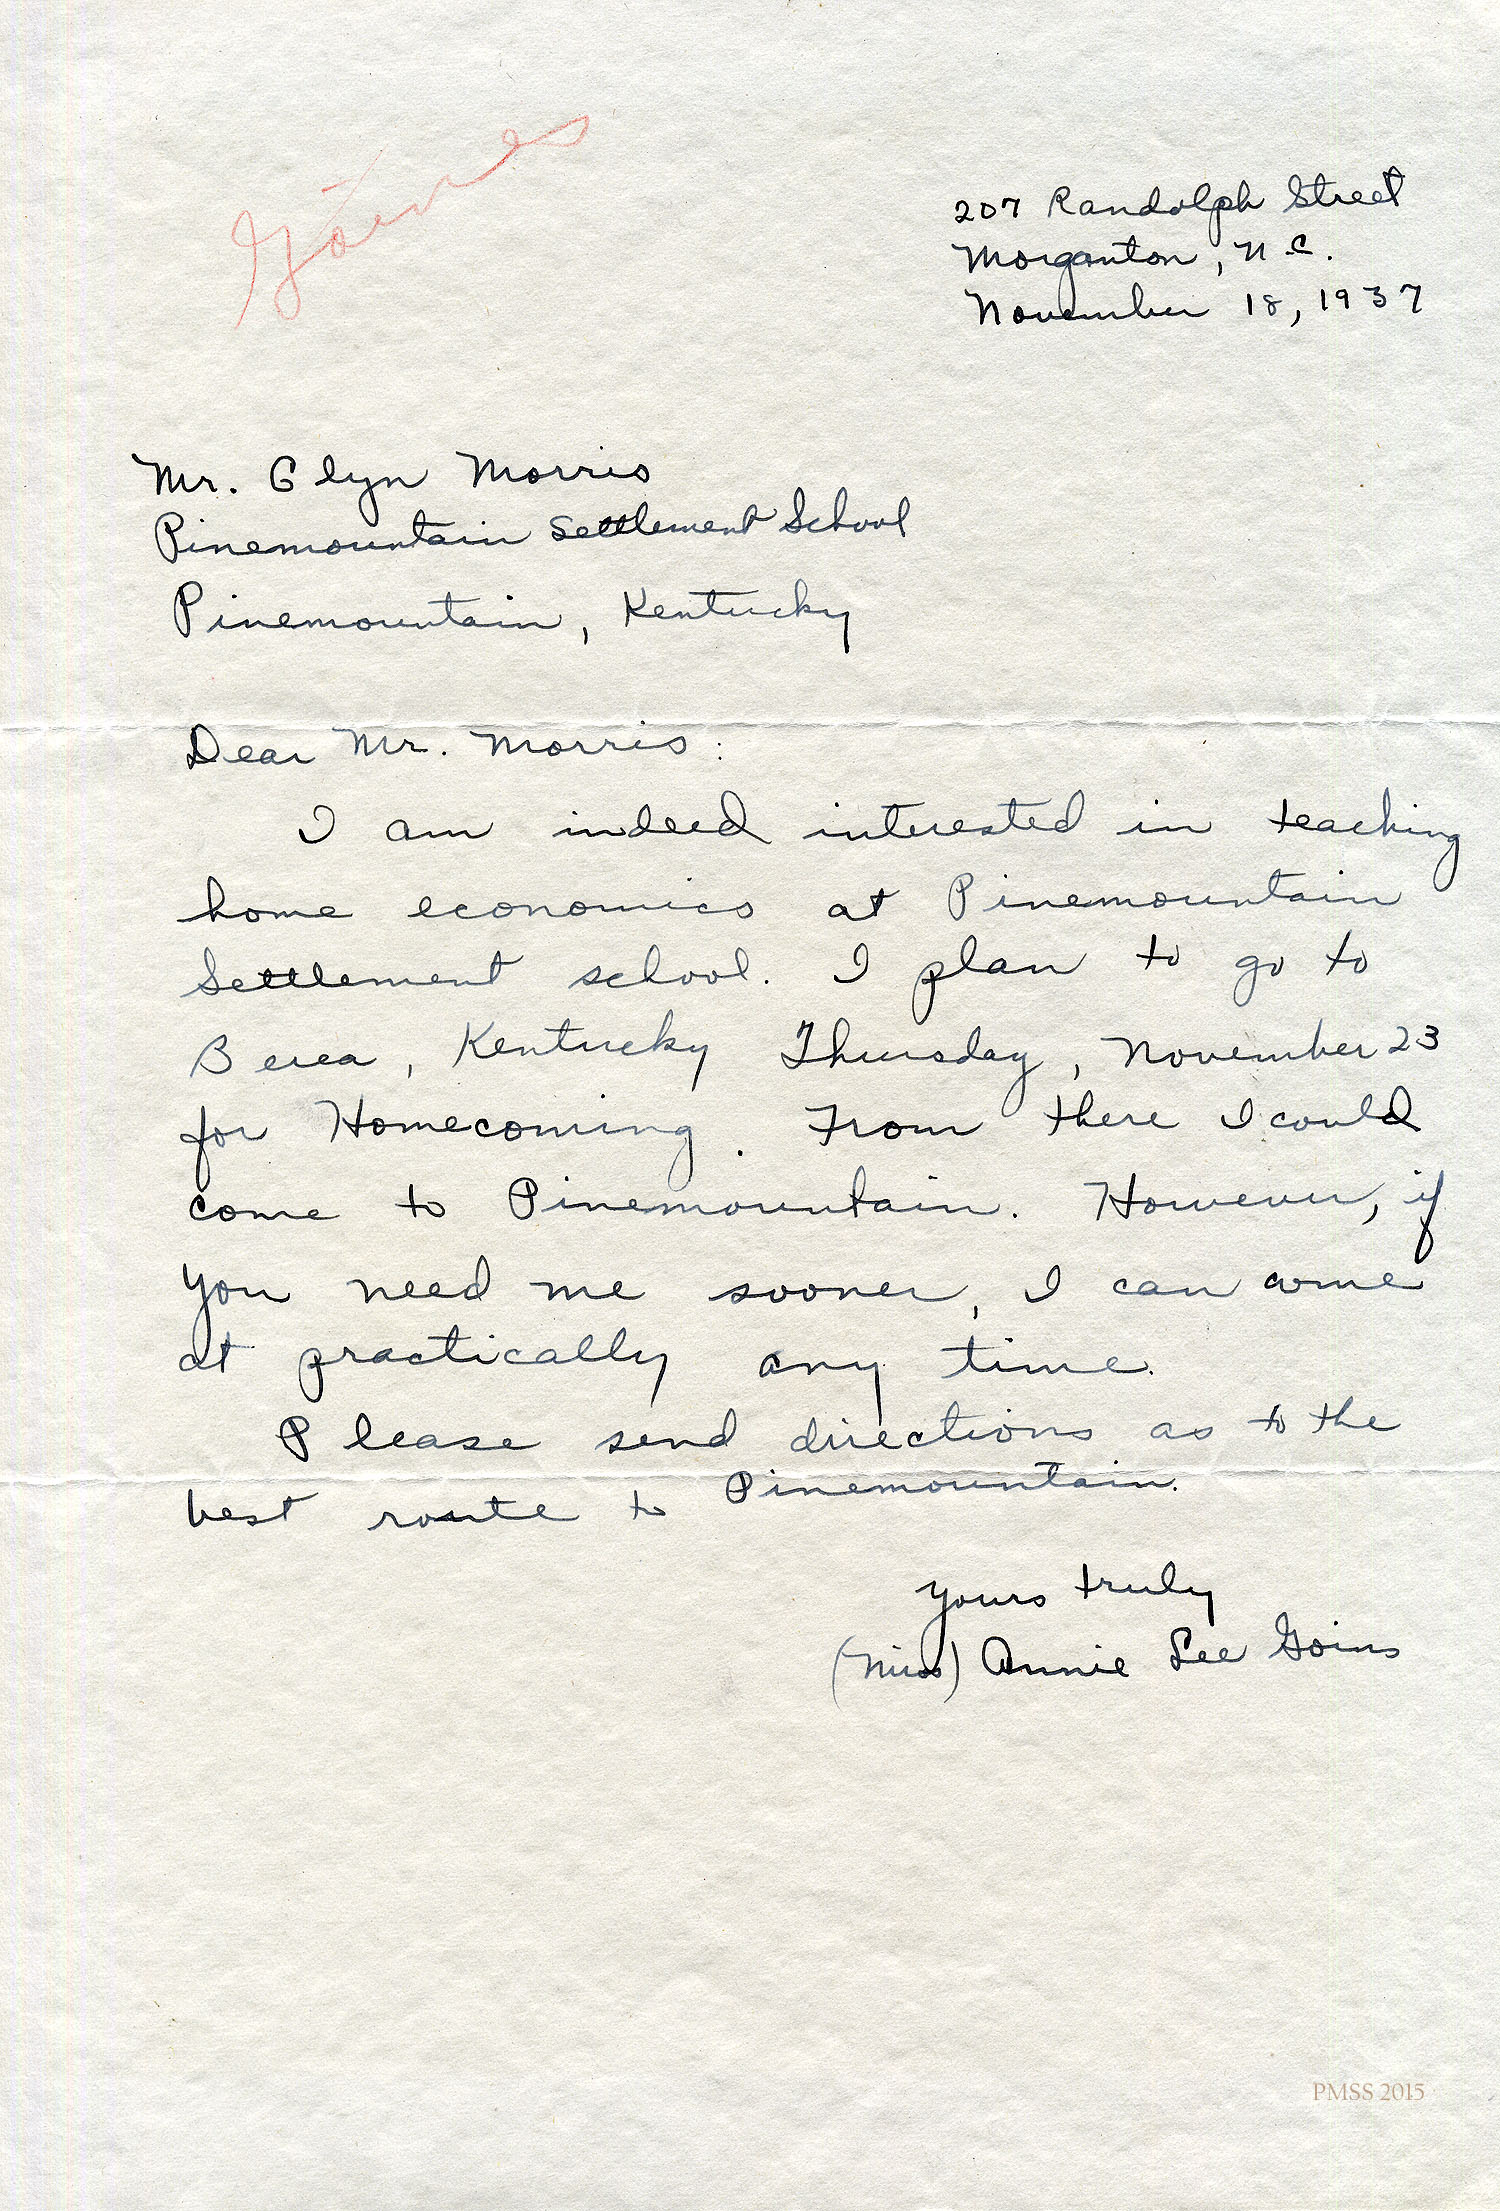 Goines
207 Randolph Street
Morganton, N.C.
November 18, 1937
Mr. Glyn Morris
Pinemountain Settlement School
Pinemountain, Kentucky
Dear Mr. Morris:
I am indeed interested in teaching
home economics at Pinemountain
Settlement school. I plan to go to
Berea, Kentucky Thursday, November 23
for Homecoming. From there I could
come to Pinemountain. However, if
you need me sooner, I can come
at practically any time.
Please send directions as to the
best route to Pinemountain.
Yours truly
(Miss) Annie Lee Goins
PMSS 2015